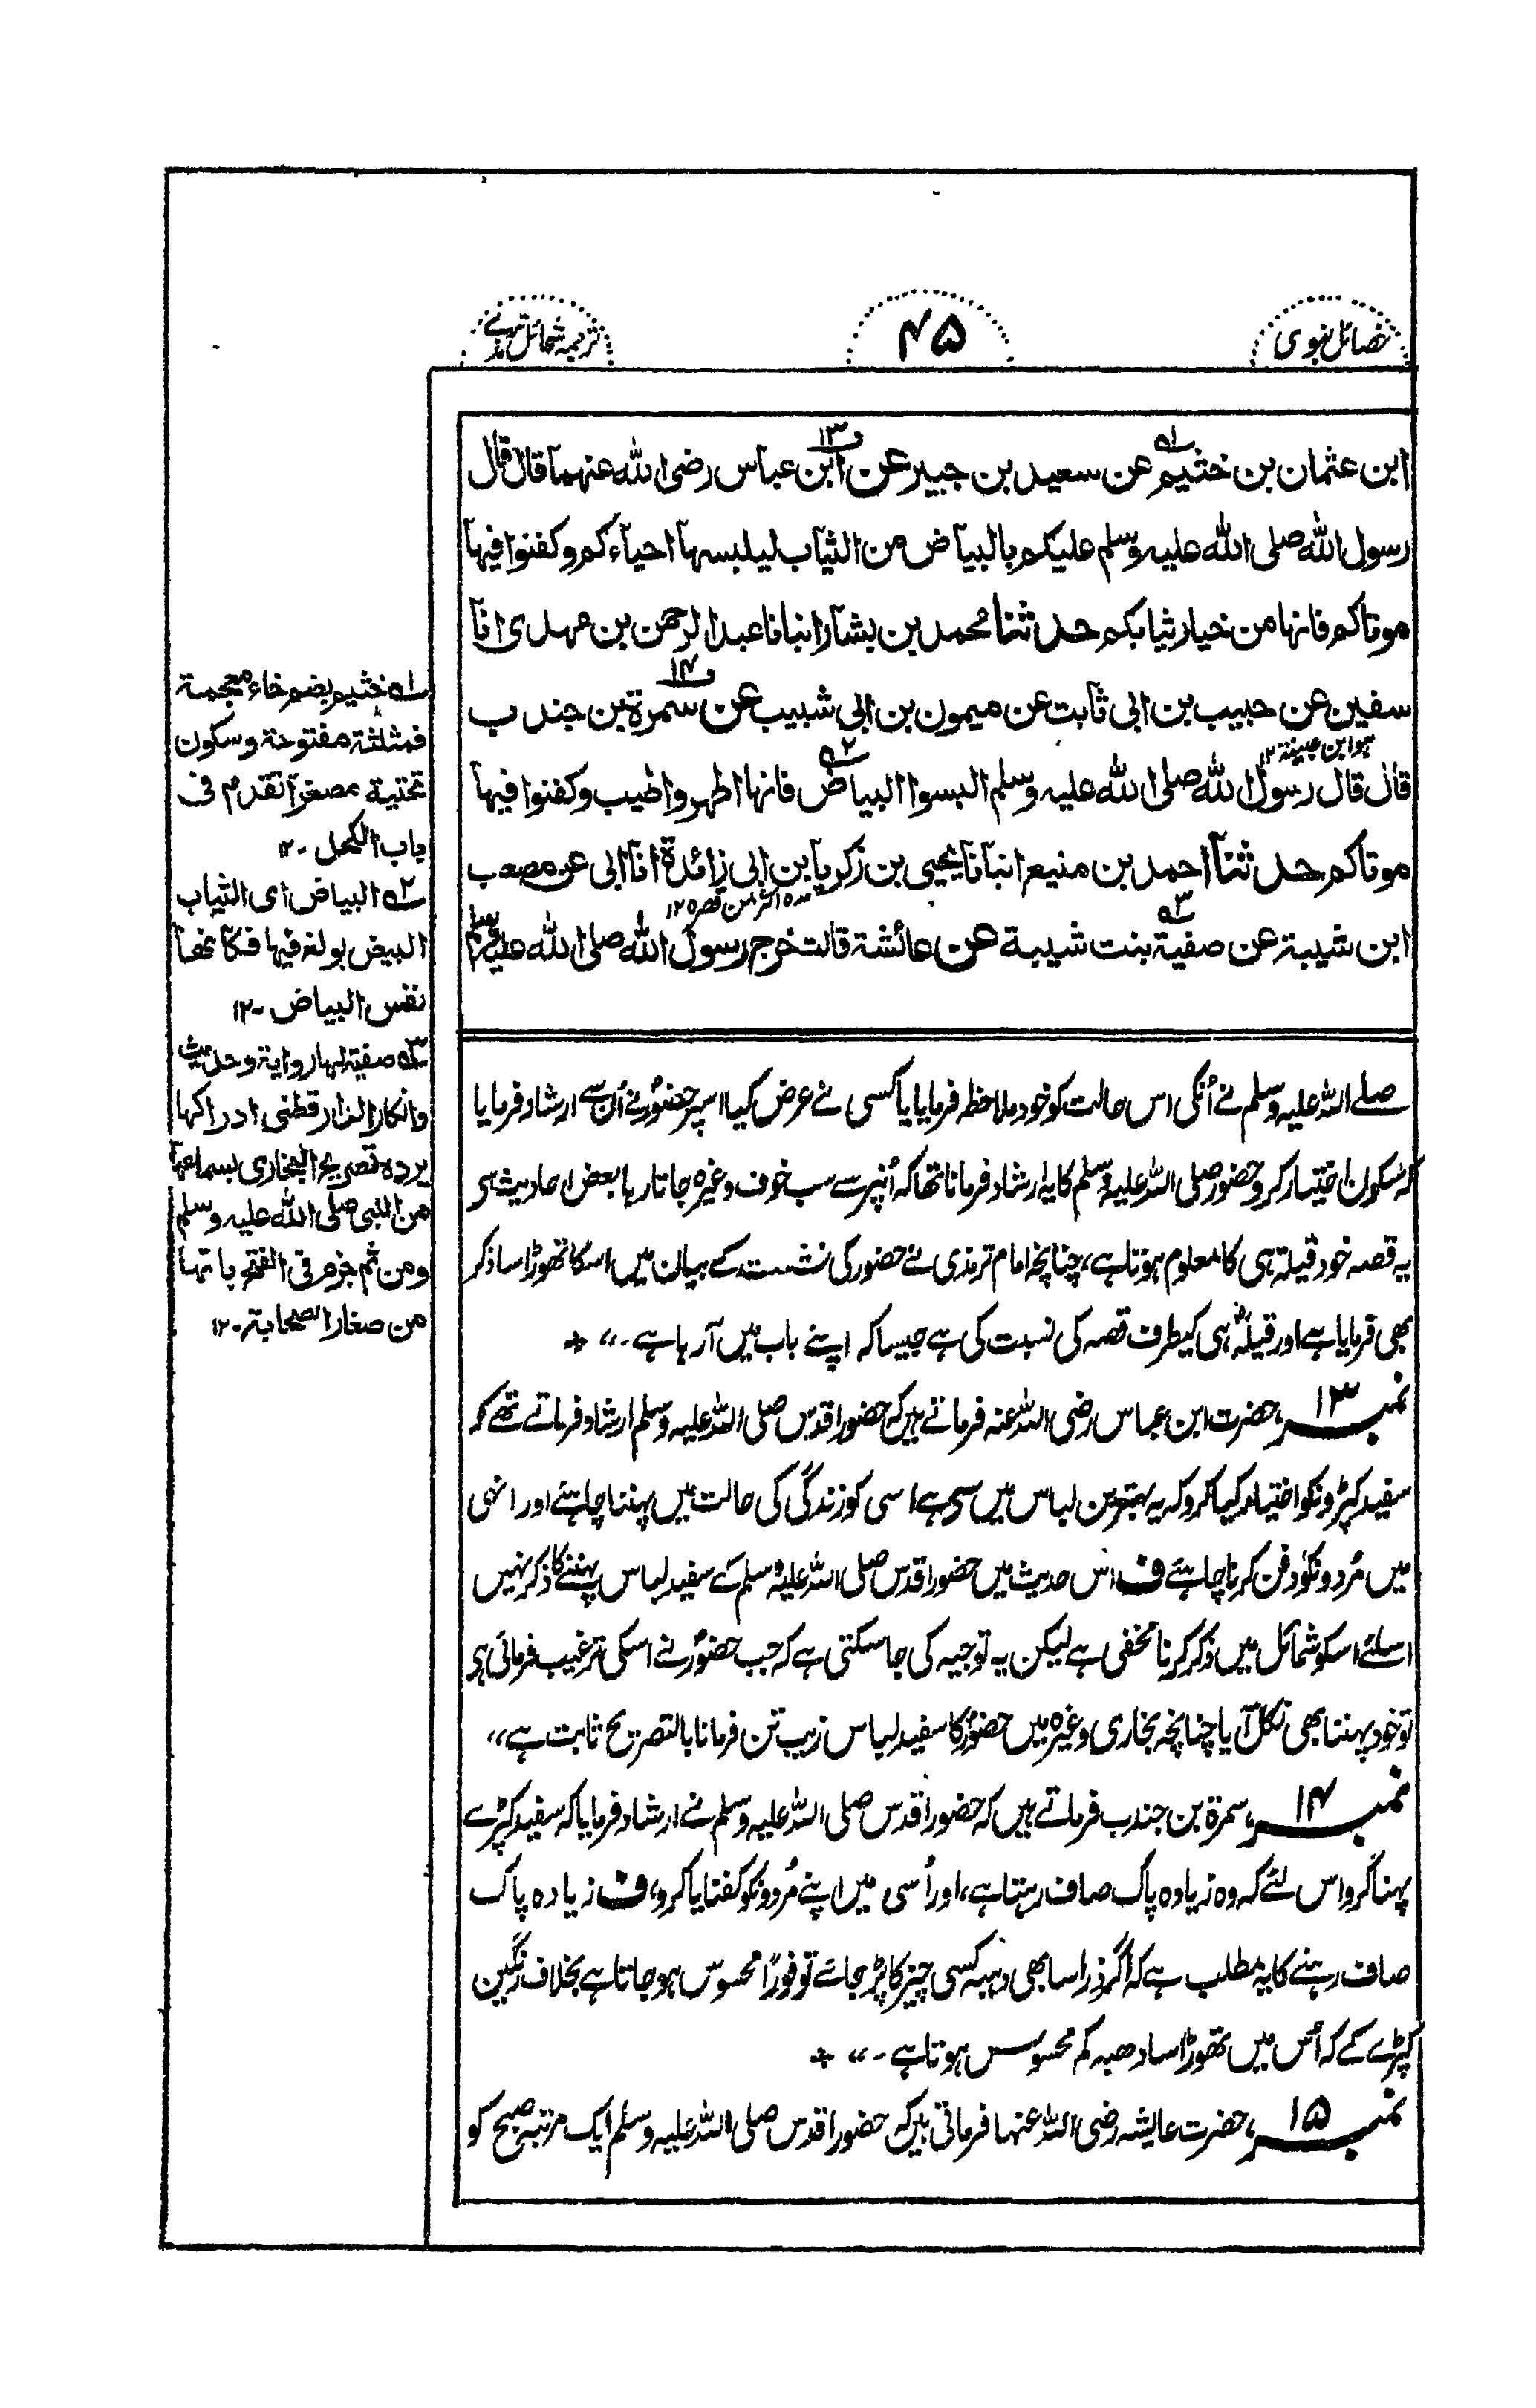 خصائل نبوی
۴۵
ترجمہ شمائل ترمذی
ابن عثمان بن خثیم عن سعید بن جبیر عن ابن عباس رضی الله عنهما قال قال
رسول الله صلی الله علیه وسلم علیکم بالبیاض من الثیاب لیلبسها احیاءکم وکفنوا فیها
موتاکم فانها من خیار ثیابکم حدثنا محمد بن بشار انبانا عبد الرحمن بن مهدی انا
سفین عن حبیب بن ابی ثابت عن میمون بن ابی شبیب عن سمرة بن جندب
قال قال رسول الله صلی الله علیه وسلم البسوا البیاض فانها اطهر واطیب وکفنوا فیها
موتاکم حدثنا احمد بن منیع انبانا یحیی بن زکریا بن ابی زائدة انا ابی عن مصعب
ابن شیبة عن صفیة بنت شیبة عن عائشة قالت خرج رسول الله صلی الله علیه وسلم
صلے اللہ علیہ وسلم نے اُنکی اس حالت کو خود ملاحظہ فرمایا یا کسی نے عرض کیا اسپر حضورؐ نے اُن سے ارشاد فرمایا
کہ سکون اختیار کرو حضور صلی اللہ علیہ وسلم کا یہ ارشاد فرمانا تھا کہ اُنپر سے سب خوف وغیرہ جاتا رہا بعض احادیث سی
یہ قصہ خود قیلہ ہی کا معلوم ہوتا ہے، چنانچہ امام ترمذی نے حضور کی نشست کے بیان میں اسکا تھوڑا سا ذکر
بھی فرمایا ہے اور قیلہؓ ہی کیطرف قصہ کی نسبت کی ہے جیسا کہ اپنے باب میں آ رہا ہے۔
نمبر ۱۳، حضرت ابن عباس رضی اللہ عنہ فرماتے ہیں کہ حضور اقدس صلی اللہ علیہ وسلم ارشاد فرماتے تھے کہ
سفید کپڑونکو اختیار کیا کرو کہ یہ بہترین لباس میں سی ہے اسی کو زندگی کی حالت میں پہننا چاہئے اور انہی
میں مُردونکو دفن کرنا چاہئے ف اس حدیث میں حضور اقدس صلی اللہ علیہ وسلم کے سفید لباس پہننے کا ذکر نہیں
اسلئے اسکو شمائل میں ذکر کرنا مخفی ہے لیکن یہ توجیہ کی جا سکتی ہے کہ جب حضورؐ نے اسکی ترغیب فرمائی ہی
تو خود پہننا بھی نکل آیا چنانچہ بخاری وغیرہ میں حضورؐ کا سفید لباس زیب تن فرمانا بالتصریح ثابت ہے،،
نمبر ۱۴، سمرة بن جندب فرماتے ہیں کہ حضور اقدس صلی اللہ علیہ وسلم نے ارشاد فرمایا کہ سفید کپڑے
پہنا کرو اس لئے کہ وہ زیادہ پاک صاف رہتا ہے، اور اُسی میں اپنے مُردونکو کفنایا کرو، ف زیادہ پاک
صاف رہنے کا یہ مطلب ہے کہ اگر ذرا سا بھی دہبہ کسی چیز کا پڑ جائے تو فوراً محسوس ہو جاتا ہے بخلاف رنگین
کپڑے کے کہ اُس میں تھوڑا سا دھبہ کم محسوس ہوتا ہے۔
نمبر ۱۵، حضرت عایشہ رضی اللہ عنہا فرماتی ہیں کہ حضور اقدس صلی اللہ علیہ وسلم ایک مرتبہ صبح کو
لہ خثیم بضم خاء معجمة
فمثلثة مفتوحة وسکون
تحتیة مصغرا تقدم فی
باب الکحل۔۱۲
۲ہ البیاض ای الثیاب
البیض بولغ فیها فکانها
نفس البیاض۔۱۲
۳ہ صفیة لها روایة وحدیث
وانکار الدارقطنی ادراکها
یرده تصریح البخاری بسماعها
من النبی صلی الله علیه وسلم
ومن ثم جزم فی الفتح بانها
من صغار الصحابة۔۱۲